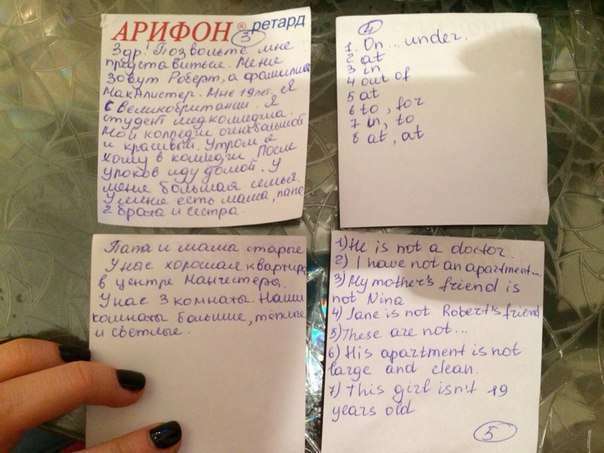 АРИФОН® ретард
3
Здр! Позвольте мне
представиться. Меня
зовут Роберт, а фамилия
МакАлистер. Мне 19 лет. Я
с Великобритании. Я
студент медколледжа.
Мой колледж очень большой
и красивый. Утром я
хожу в колледж. После
уроков иду домой. У
меня большая семья.
У меня есть мама, папа
2 брата и сестра.
4
1. On... under.
2 at
3 in
4 out of
5 at
6 to, for
7 in, to
8 at, at
Папа и мама старые
У нас хорошая квартира
в центре Манчестера.
У нас 3 комнаты. Наши
комнаты большие, теплые
и светлые.
1) He is not a doctor.
2) I have not an apartment...
3) My mother's friend is
not Nina
4) Jane is not Robert's friend
5) These are not...
6) His apartment is not
large and clean.
7) This girl isn't 19
years old
5